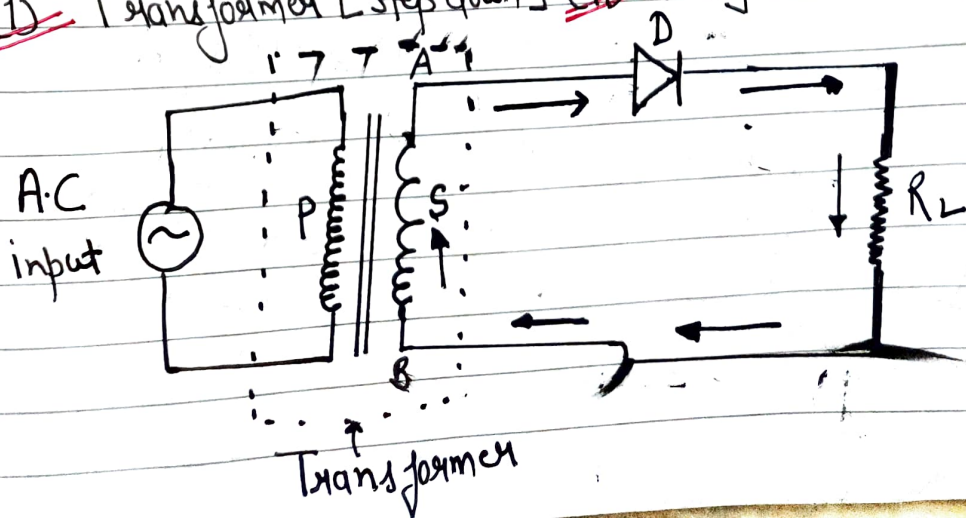 1) Transformer [step down]
A
D
A.C
input
P
S
RL
B
Transformer